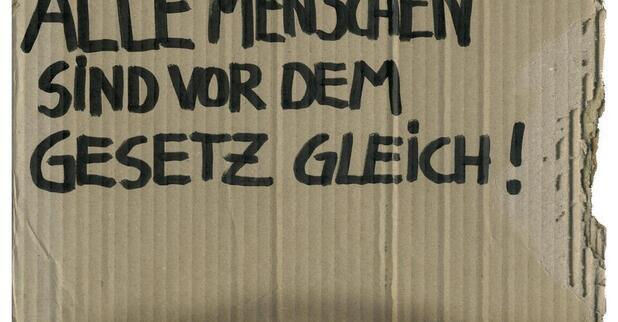 ALLE MENSCHEN
SIND VOR DEM
GESETZ GLEICH!